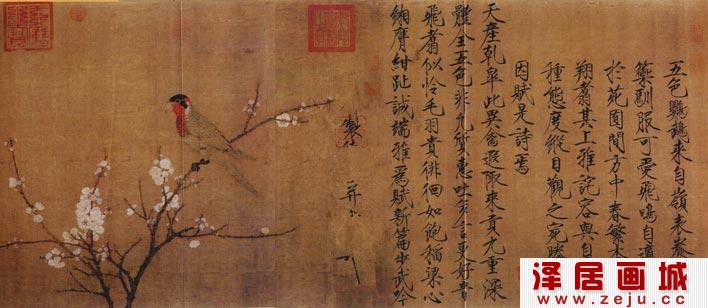 五色鸚鵡來自嶺表養
籞馴服可愛飛鳴自適
於苑囿間方中春繁杏
翔翥其上雅詫容與自
種態度縱目觀之宛勝
因賦是詩焉
天產乾皋此異禽遐陬來貢九重深
體全五色非凡質惠吐多言更好音
飛翥似憐毛羽貴徘徊如飽稻粱心
緗膺紺趾誠端雅為賦新篇步武吟
製
泽居画城
www.zeju.cc